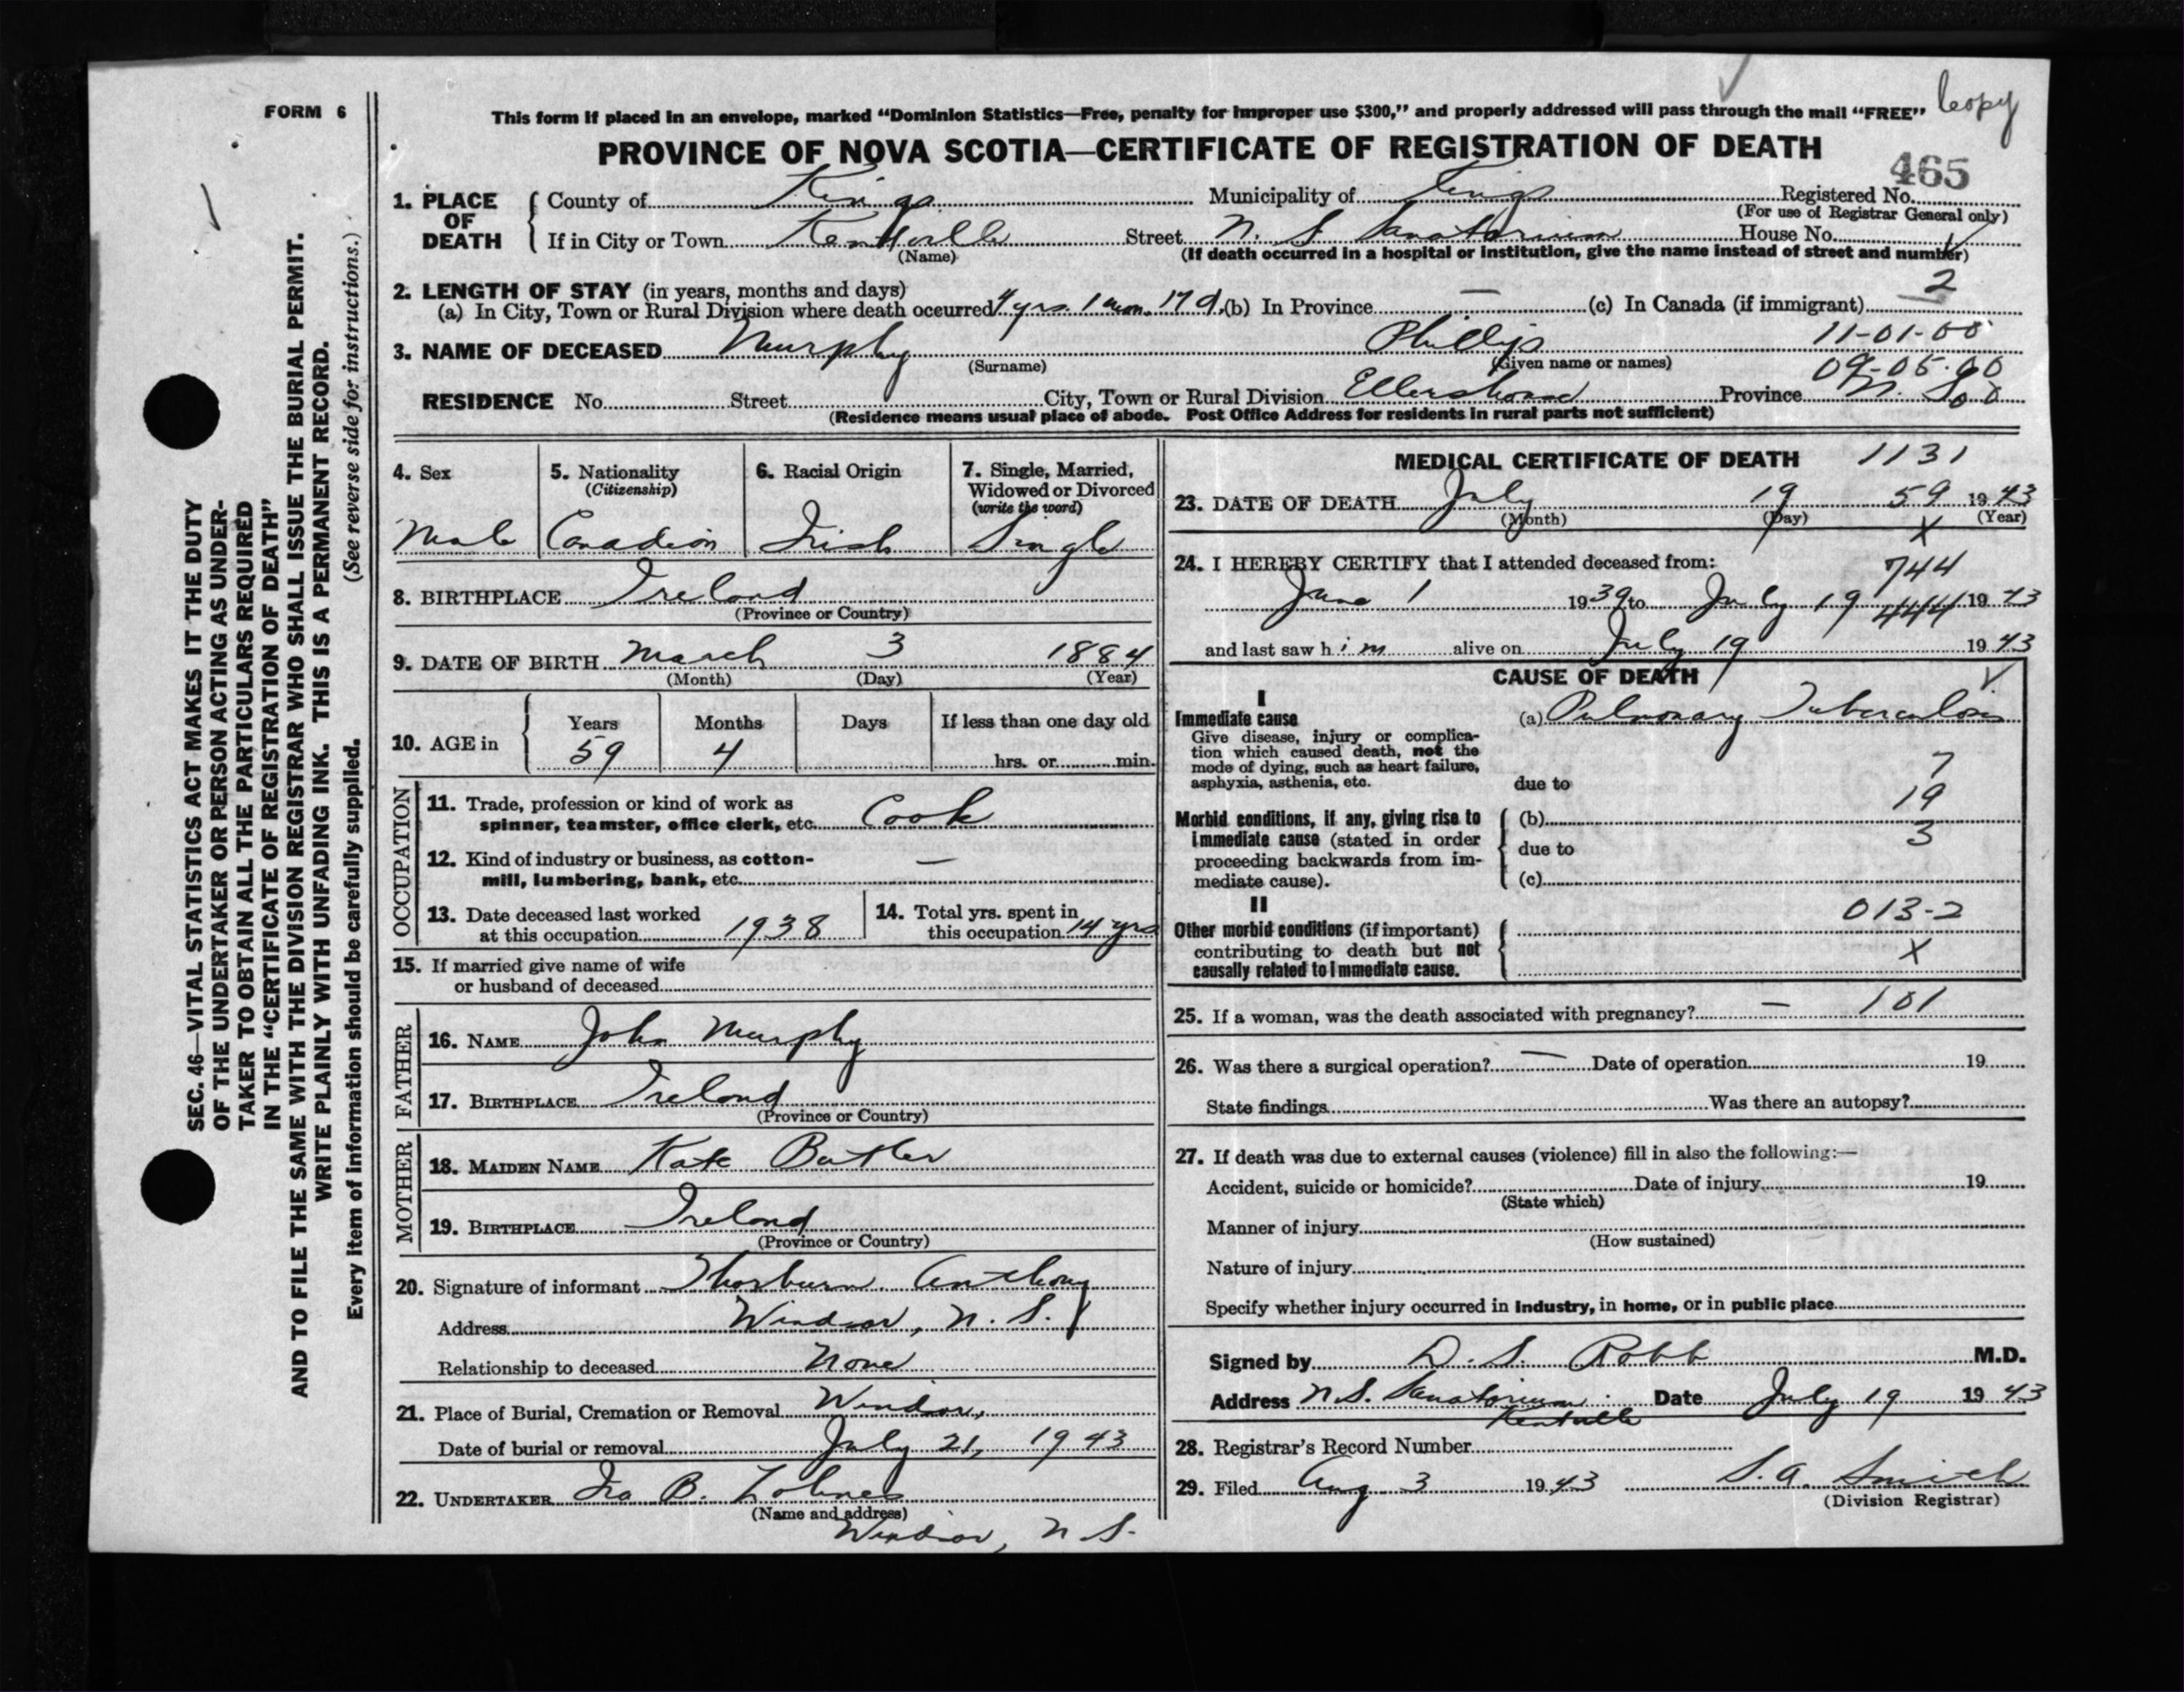 FORM 6
This form if placed in an envelope, marked "Dominion Statistics—Free, penalty for improper use $300," and properly addressed will pass through the mail "FREE"
Copy
PROVINCE OF NOVA SCOTIA—CERTIFICATE OF REGISTRATION OF DEATH
465
1. PLACE OF DEATH
County of Kings Municipality of Kings Registered No.
(For use of Registrar General only)
If in City or Town Kentville Street N. S. Sanatorium House No.
(Name) (If death occurred in a hospital or institution, give the name instead of street and number)
2. LENGTH OF STAY (in years, months and days) 2
(a) In City, Town or Rural Division where death occurred 4 yrs. 1 mon. 17 d. (b) In Province — (c) In Canada (if immigrant)
11-01-00
3. NAME OF DECEASED Murphy Phillip
(Surname) (Given name or names)
09-05-00
RESIDENCE No. Street City, Town or Rural Division Ellershouse Province N. S.
(Residence means usual place of abode. Post Office Address for residents in rural parts not sufficient)
4. Sex
Male
5. Nationality
(Citizenship)
Canadian
6. Racial Origin
Irish
7. Single, Married,
Widowed or Divorced
(write the word)
Single
8. BIRTHPLACE Ireland
(Province or Country)
9. DATE OF BIRTH March 3 1884
(Month) (Day) (Year)
10. AGE in
Years Months Days If less than one day old
59 4 hrs. or min.
OCCUPATION
11. Trade, profession or kind of work as
spinner, teamster, office clerk, etc. Cook
12. Kind of industry or business, as cotton-
mill, lumbering, bank, etc. —
13. Date deceased last worked
at this occupation 1938
14. Total yrs. spent in
this occupation 14 yrs
15. If married give name of wife
or husband of deceased
FATHER
16. NAME John Murphy
17. BIRTHPLACE Ireland
(Province or Country)
MOTHER
18. MAIDEN NAME Kate Butler
19. BIRTHPLACE Ireland
(Province or Country)
20. Signature of informant Thorburn Anthony
Address Windsor, N. S.
Relationship to deceased None
21. Place of Burial, Cremation or Removal Windsor,
Date of burial or removal July 21, 1943
22. UNDERTAKER Ira B. Lohnes
(Name and address)
Windsor, N. S.
MEDICAL CERTIFICATE OF DEATH 1131
23. DATE OF DEATH July 19 59 1943
(Month) (Day) (Year)
X
24. I HEREBY CERTIFY that I attended deceased from:
744
June 1 1939 to July 19 444 1943
and last saw him alive on July 19 1943
CAUSE OF DEATH
I
Immediate cause
Give disease, injury or complica-
tion which caused death, not the
mode of dying, such as heart failure,
asphyxia, asthenia, etc.
(a) Pulmonary Tuberculosis
7
due to
19
Morbid conditions, if any, giving rise to
immediate cause (stated in order
proceeding backwards from im-
mediate cause).
(b)
3
due to
(c)
II
Other morbid conditions (if important)
contributing to death but not
causally related to immediate cause.
013-2
X
25. If a woman, was the death associated with pregnancy? — 101
26. Was there a surgical operation? — Date of operation 19
State findings Was there an autopsy?
27. If death was due to external causes (violence) fill in also the following:—
Accident, suicide or homicide? Date of injury 19
(State which)
Manner of injury
(How sustained)
Nature of injury
Specify whether injury occurred in industry, in home, or in public place
Signed by D. S. Robb M.D.
Address N.S. Sanatorium Date July 19 1943
Kentville
28. Registrar's Record Number
29. Filed Aug 3 1943 S. A. Smith
(Division Registrar)
SEC. 46—VITAL STATISTICS ACT MAKES IT THE DUTY
OF THE UNDERTAKER OR PERSON ACTING AS UNDER-
TAKER TO OBTAIN ALL THE PARTICULARS REQUIRED
IN THE "CERTIFICATE OF REGISTRATION OF DEATH"
AND TO FILE THE SAME WITH THE DIVISION REGISTRAR WHO SHALL ISSUE THE BURIAL PERMIT.
WRITE PLAINLY WITH UNFADING INK. THIS IS A PERMANENT RECORD.
Every item of information should be carefully supplied. (See reverse side for instructions.)